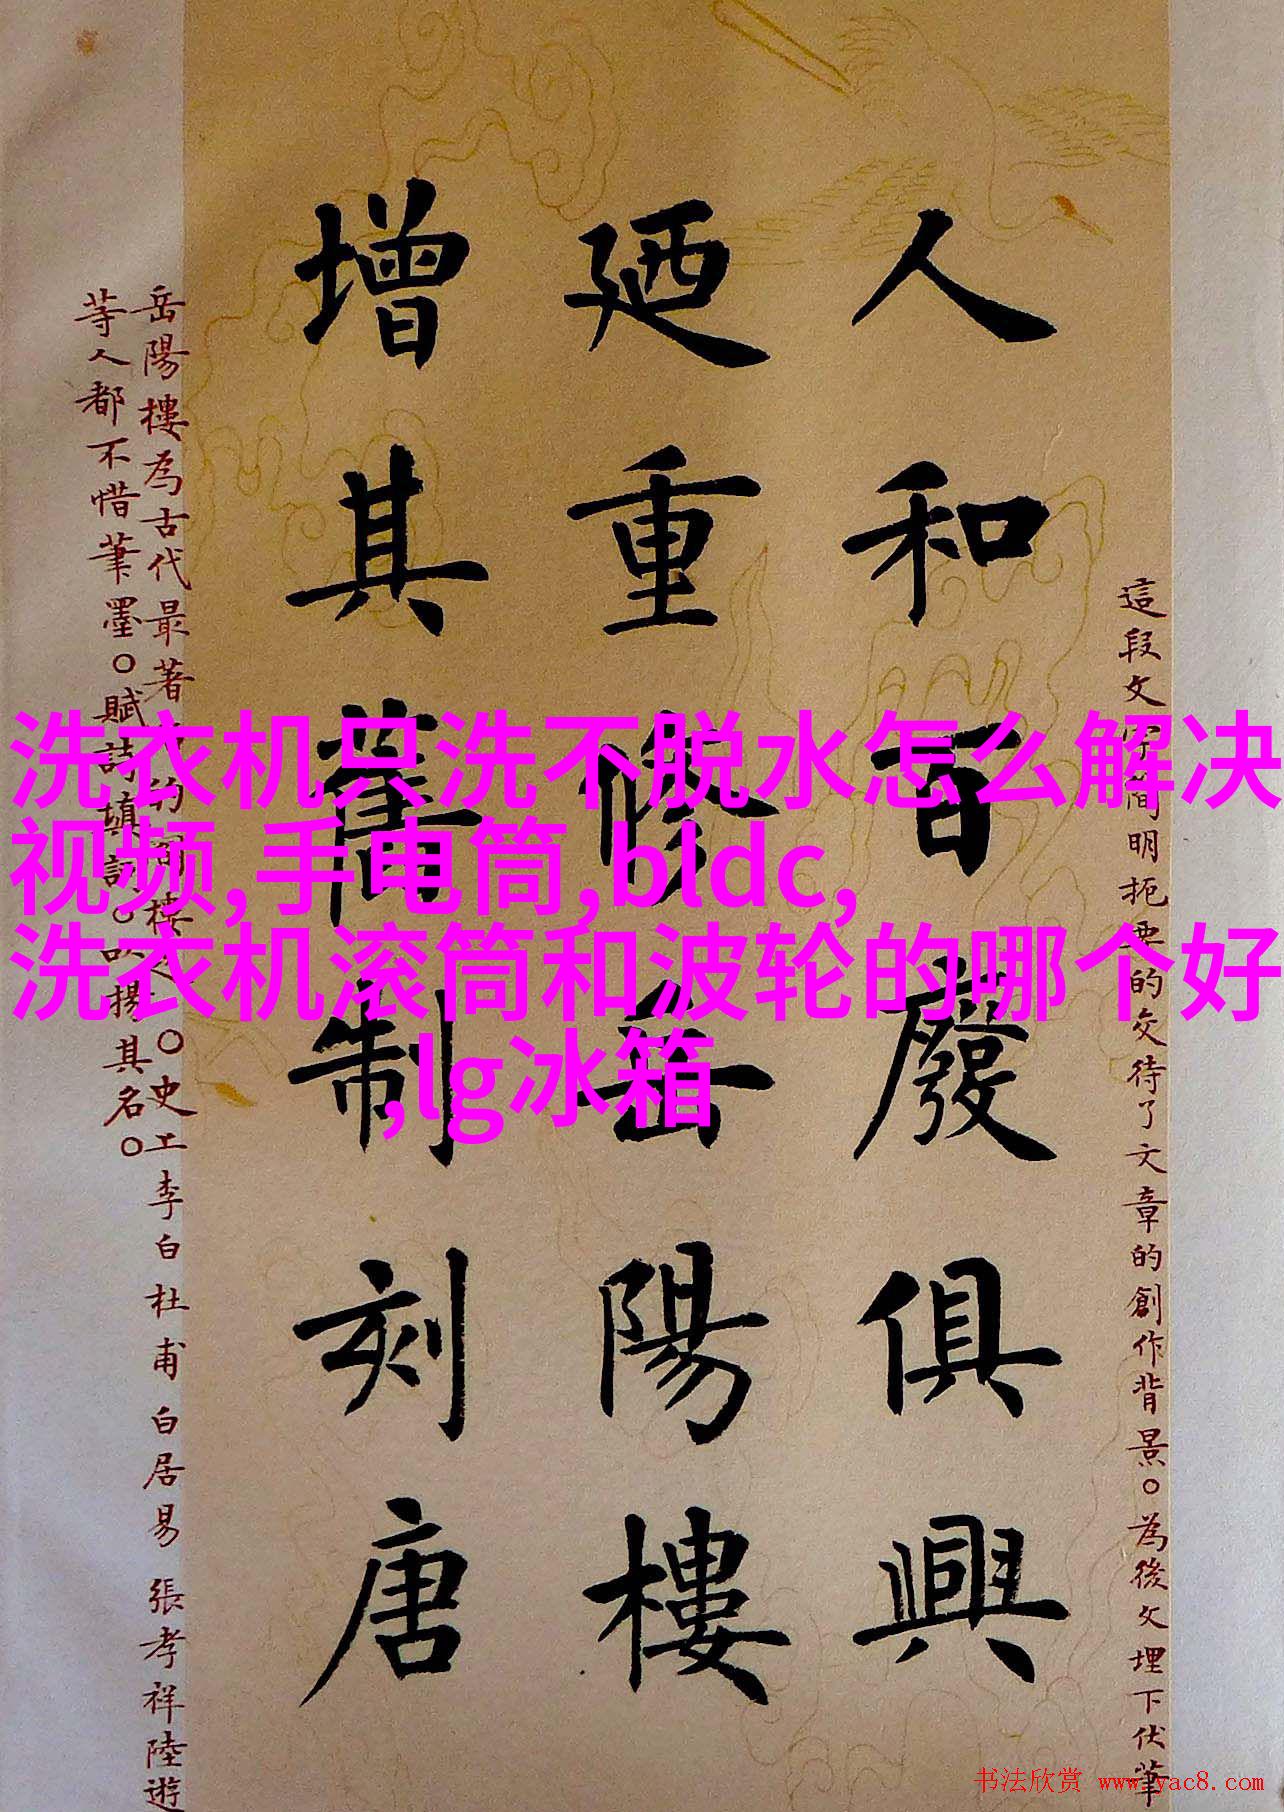 人和百廢俱興
廼重修岳陽樓
增其舊制刻唐
這段文字简明扼要的交待了文章的創作背景。為後文埋下伏筆
岳陽樓為古代最著名的
樓
。史上李白杜甫白居易張孝祥陸遊
等人都不惜筆墨。賦詩填詞。以揚其名。
洗衣机只洗不脱水怎么解决
视频,手电筒,bldc,
洗衣机滚筒和波轮的哪个好
,lg冰箱
书法欣赏 www.yac8.com